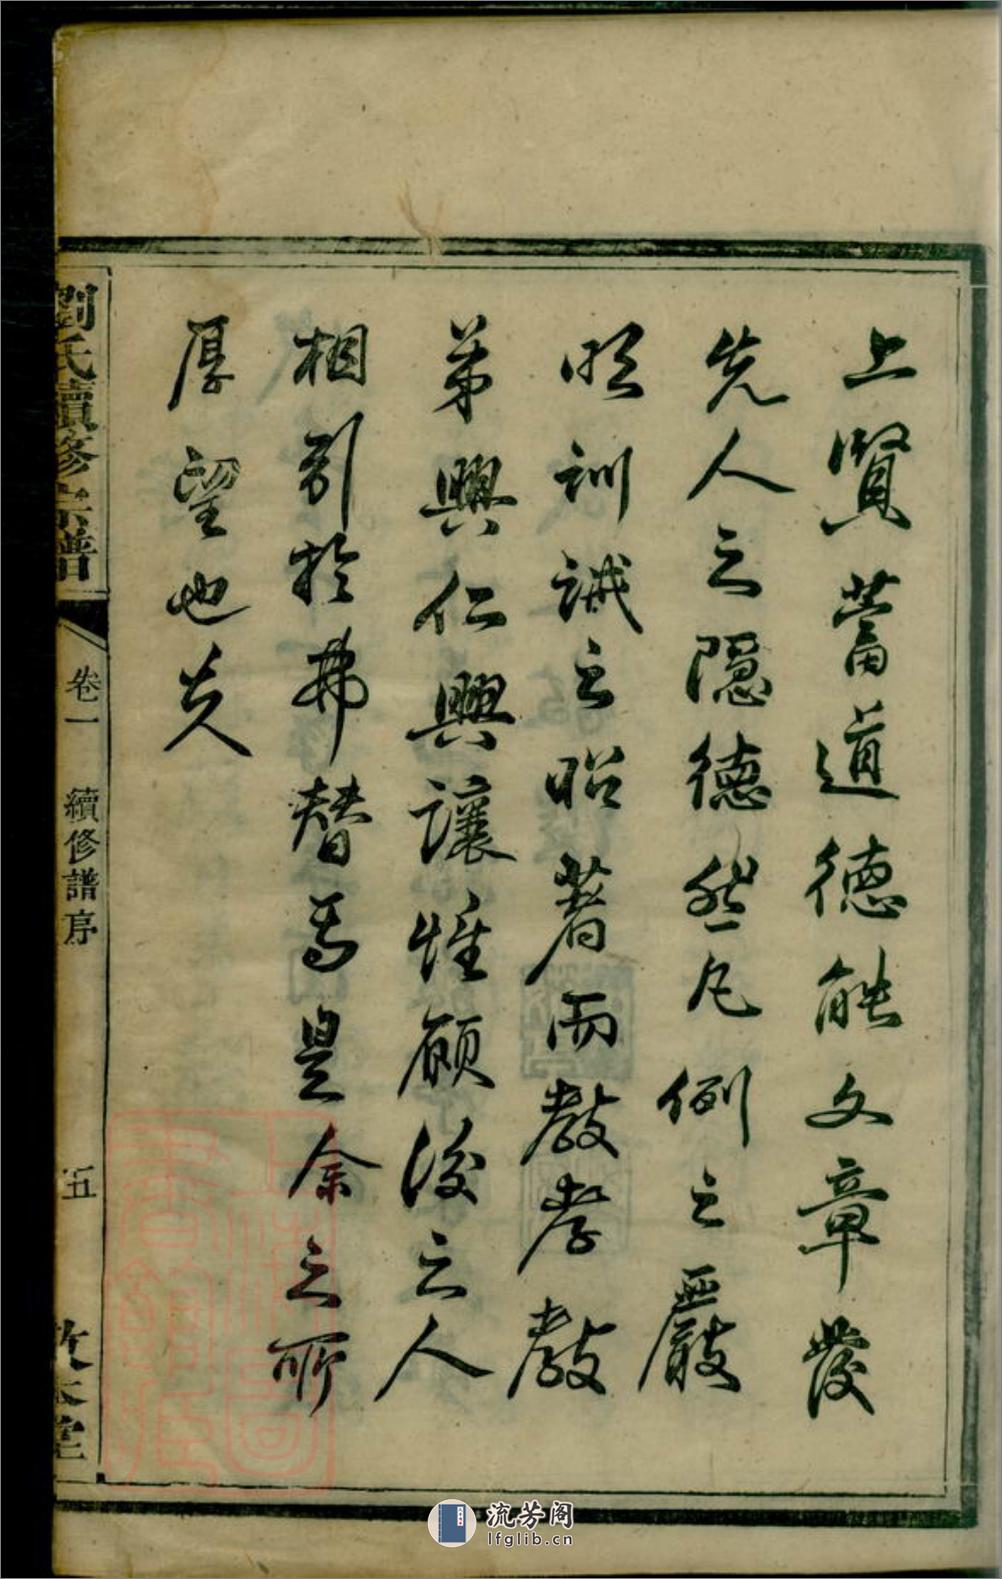 上賢蓄道德能文章發
先人之隱德然凡例之嚴
明訓誡之昭著而教孝教
弟興仁興讓惟顧後之人
相引於弗替焉是余之所
厚望也夫
劉氏續修宗譜
卷一 續修譜序
五
敦本堂
流芳阁
lfglib.cn